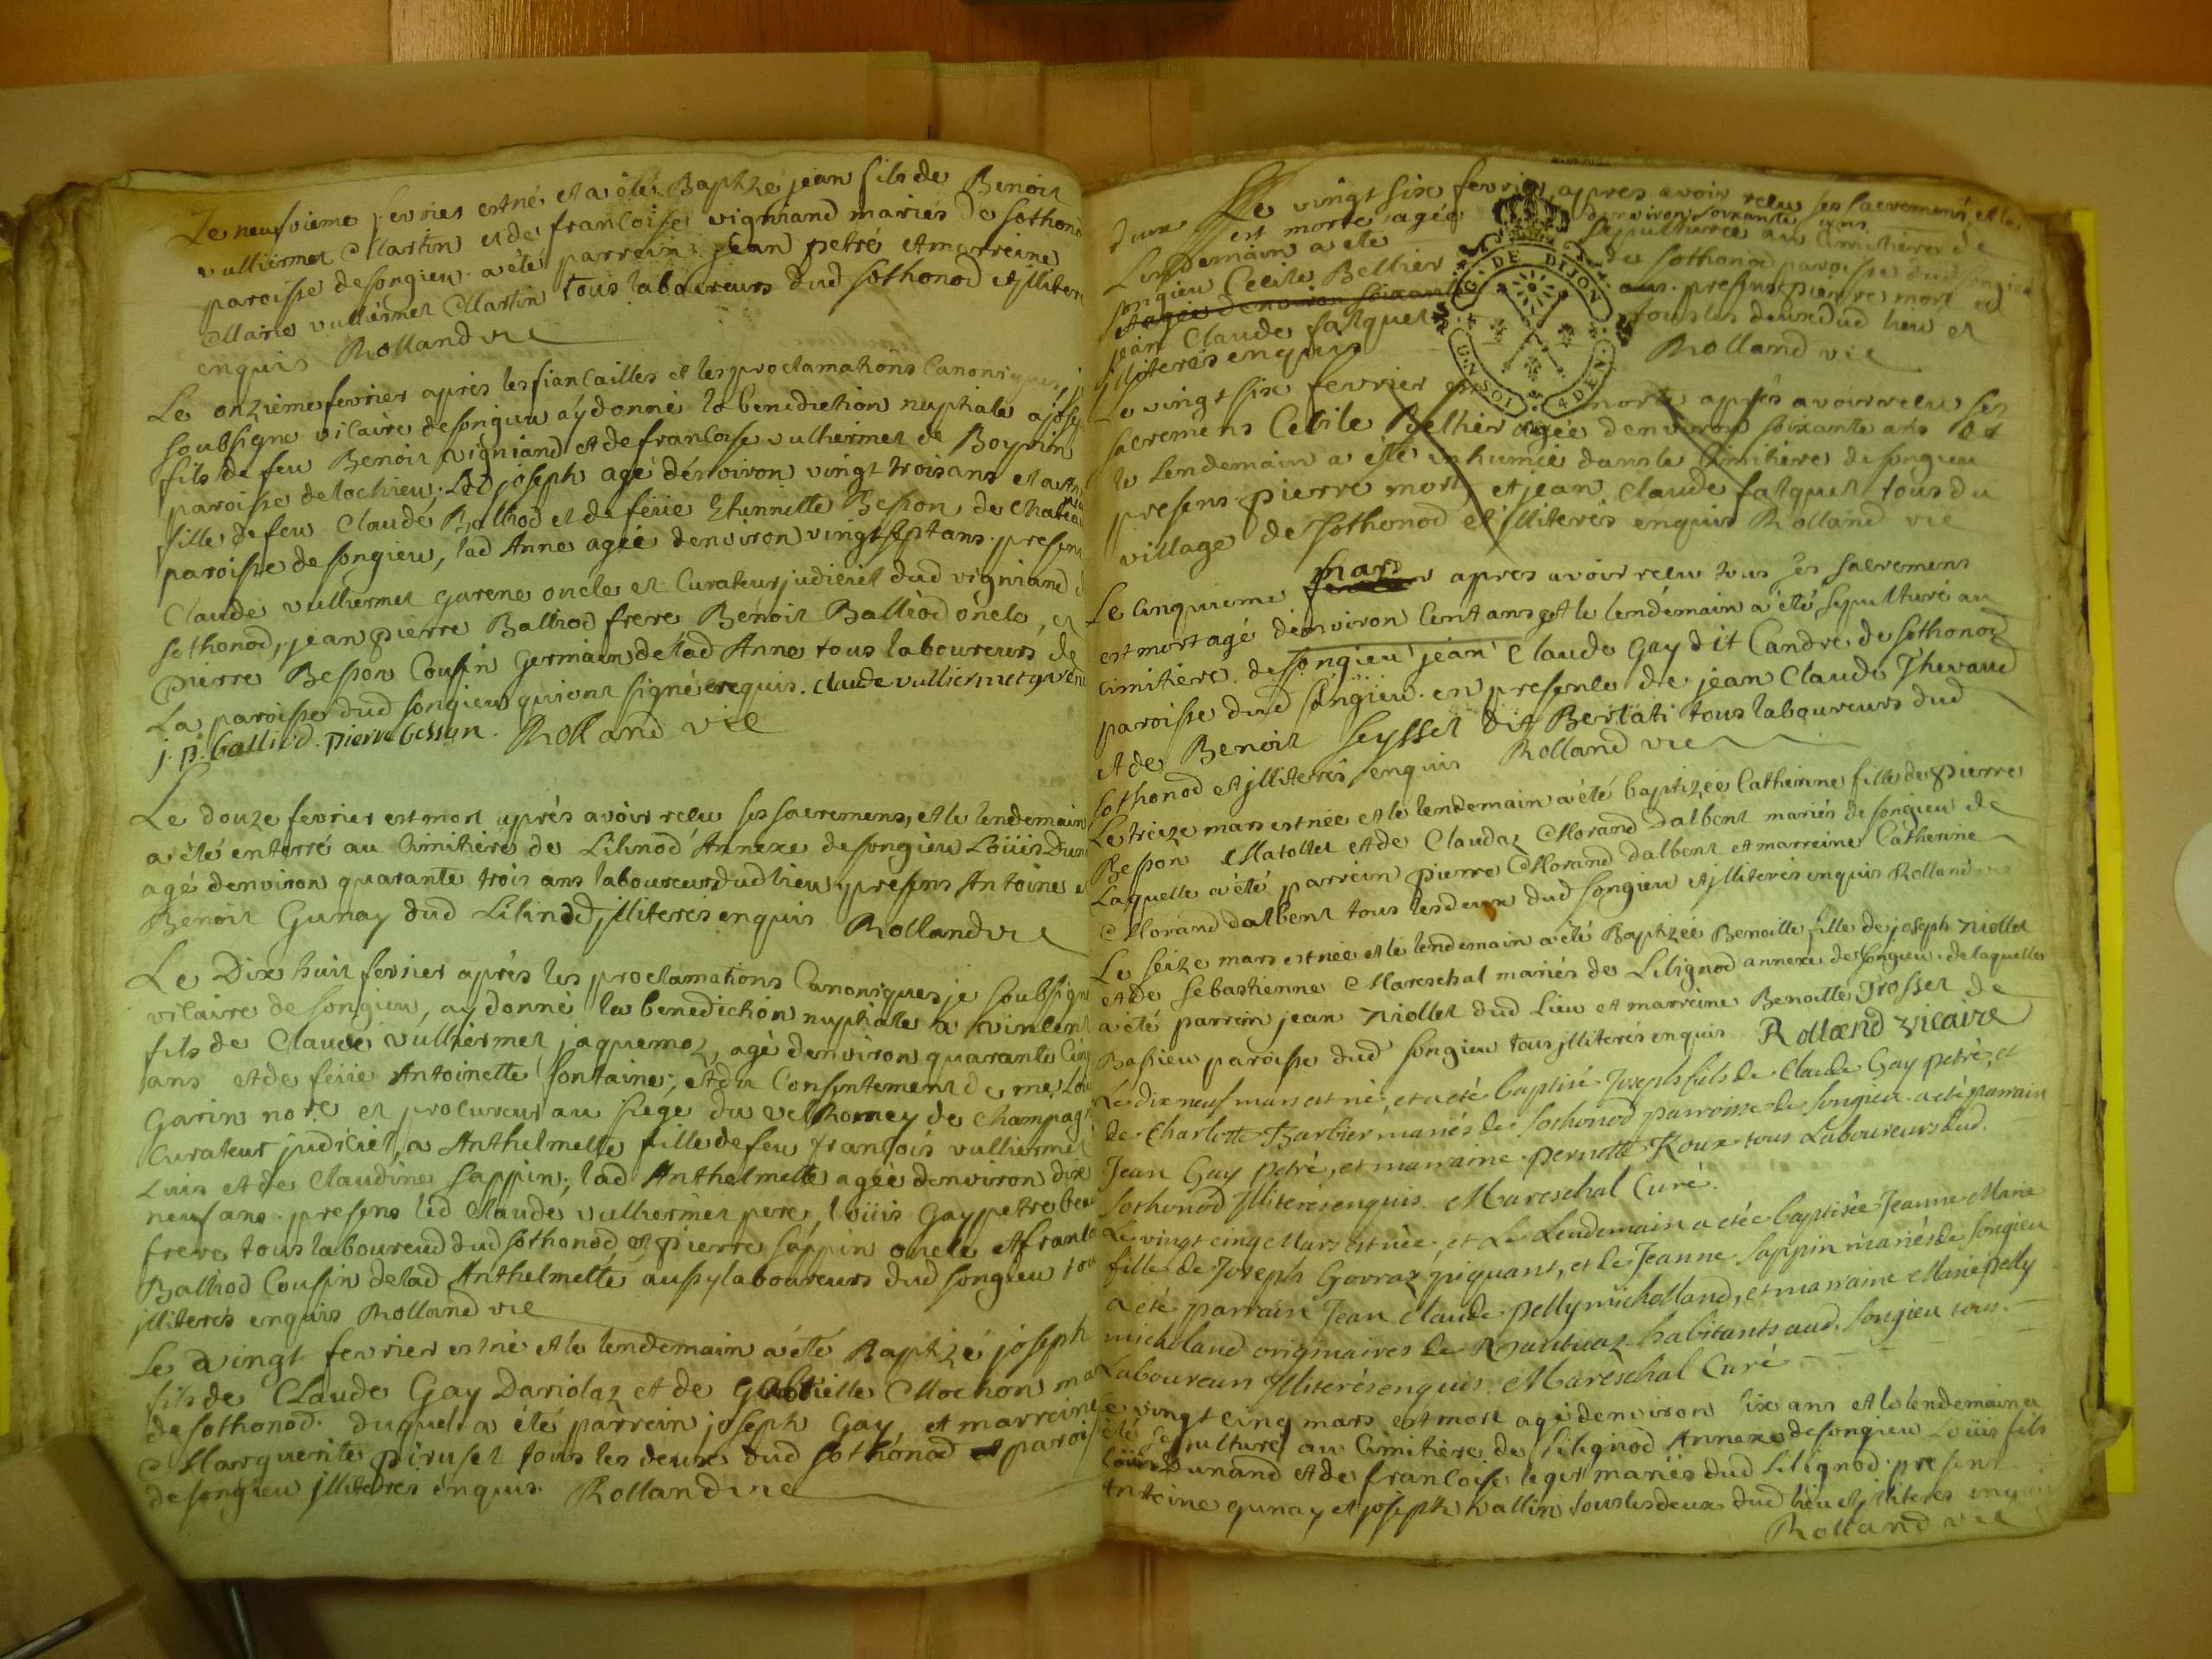 Le neufvieme fevrier est né et a été Baptizé jean fils de Benoit
vulliermet Martin et de francoise vigniand mariés de sothonod
paroisse de songieu. a été parrein jean petré et marreine
Marie vulliermet Martin tous laboureurs dud sothonod et jlliteres
enquis Rolland vic
Le onzieme fevrier aprés les fiancailles et les proclamations Canoniques, je
soubsigné vicaire de songieu aÿ donné la benediction nuptiale a joseph
fils de feu Benoit vigniand et de francoise vulliermet de Boyrin
paroise de lochieu, led joseph agé d'environ vingt trois ans et a Anne
fille de feu Claude Balliod et de feüe Etiennette Besson de
paroisse de songieu, lad Anne agée denviron vingt sept ans. presens
Claude vulliermet garene oncle et Curateur judiciel dud vigniand
sothonod, jean pierre Balliod frere Benoit Balliod oncle, et
pierre Besson Cousin germain de lad Anne tous laboureurs de
La paroisse dud songieu qui ont signé enquis. claude vulliermet garene
j. p. balliod. pierre besson. Rolland vic
Le douze fevrier est mort aprés avoir recu ses sacremens, et le lendemain
a été enterré au Cimitière de Lilinod Annexe de songieu Loüis Dunand
agé denviron quarante trois ans laboureur dud lieu, presens Antoine et
Benoit Gunay dud Lilinod jlliteres enquis Rolland vic
Le Dix huit fevrier aprés les proclamations Canoniques je soubsigné
vicaire de songieu, ay donné la benediction nuptialle a vincent
fils de Claude vulliermet jaquemoz, agé denviron quarante cinq
ans et de feüe Antoinette fontaine, et du Consentement de me Loüis
Garin nore et procureur au siege du velRomey de Champagne
Curateur judiciel, a Anthelmette fille de feu françois vulliermet
Luis et de Claudine sappin; lad Anthelmette agée denviron dix
neuf ans. presens led Claude vulliermet pere, loüis Gay petre beau
frere tous laboureurs dud sothonod, et pierre sappin oncle et francois
Balliod Cousin de lad Anthelmette aussy laboureurs dud songieu tous
jlliterés enquis Rolland vic
Le vingt fevrier est né et le lendemain a été Baptizé joseph
fils de Claude Gay Dariolaz et de Gabrielle Mochon mariés
de sothonod. duquel a été parrein joseph Gay et marreine
Marguerite piruset tous les deux dud sothonod et paroisse
de songieu jlliteres enquis. Rolland vic
Le vingt six fevrier apres avoir recu ses sacremens, et le
est morte agée denviron soixante ans
Lendemain a été sepulturée au Cimitiere de
songieu Cecile Bellier de sothonod paroisse dud songieu
et agée denviron soixante ans. presens pierre mort et
jean Claude falquet tous les deux dud lieu et
jlliterés enquis Rolland vic
DE DIJON
UN SOL 4 DEN.
Le vingt six fevrier est morte aprés avoir recu ses
sacremens Cecile Bellier agée denviron soixante ans et
le lendemain a été inhumée dans le Cimitiere de songieu
presens pierre mort, et jean Claude falquet tous du
village de sothonod et jlliterés enquis Rolland vic
Le cinquieme mars apres avoir recu tous ses sacremens
est mort agé denviron cent ans et le lendemain a été sepulturé au
cimitiere de songieu jean Claude Gay dit Candre de sothonod
paroisse dud songieu. en presence de jean Claude Thevaud
et de Benoit seyssel dit Berlati tous laboureurs dud
sothonod et jlliterés enquis Rolland vic
Le treize mars est née et le lendemain a été baptizée Catherine fille de pierre
Besson Matollet et de Claudaz Morand dalbent mariés de songieu de
Laquelle a été parrein pierre Morand dalbent et marreine Catherine
Morand dalbent tous les deux dud songieu et jlliterés enquis Rolland vic
Le seize mars est née et le lendemain a été Baptizée Benoitte fille de joseph niollet
et de sebastienne Mareschal mariés de Lilignod annexe de songieu. de laquelle
a été parrein jean niollet dud Lieu et marreine Benoitte Grosset de
Bassieu paroisse dud songieu tous jlliterés enquis Rolland vicaire
Le dix neuf mars est né, et a eté baptisé Joseph fils de Claude Gay petré, et
de Charlotte Barbier mariés de Sothonod parroisse de Songieu. a eté parrain
Jean Gay petré, et marraine pernette Roux tous Laboureurs dud.
Sothonod Jlliterés enquis. Mareschal Curé.
Le vingt cinq Mars est née, et Le Lendemain a eté baptisée Jeanne Marie
fille de Joseph Govraz piquant, et de Jeanne Sappin mariés de Songieu
a eté parrain Jean Claude pelly micholland, et marraine Marie pelly
micholand originaires de Nantuaz habitants aud. Songieu tous
Laboureurs Jlliterés enquis. Mareschal Curé
Le vingt cinq mars est mort agé denviron six ans et le lendemain a
été sepulturé au Cimitiere de Lilignod Annexe de songieu Loüis fils
Loüis Dunand et de francoise leger mariés dud Lilignod. presens
Antoine gunay et joseph vallin tous les deux dud lieu et jlliteres enquis
Rolland vic